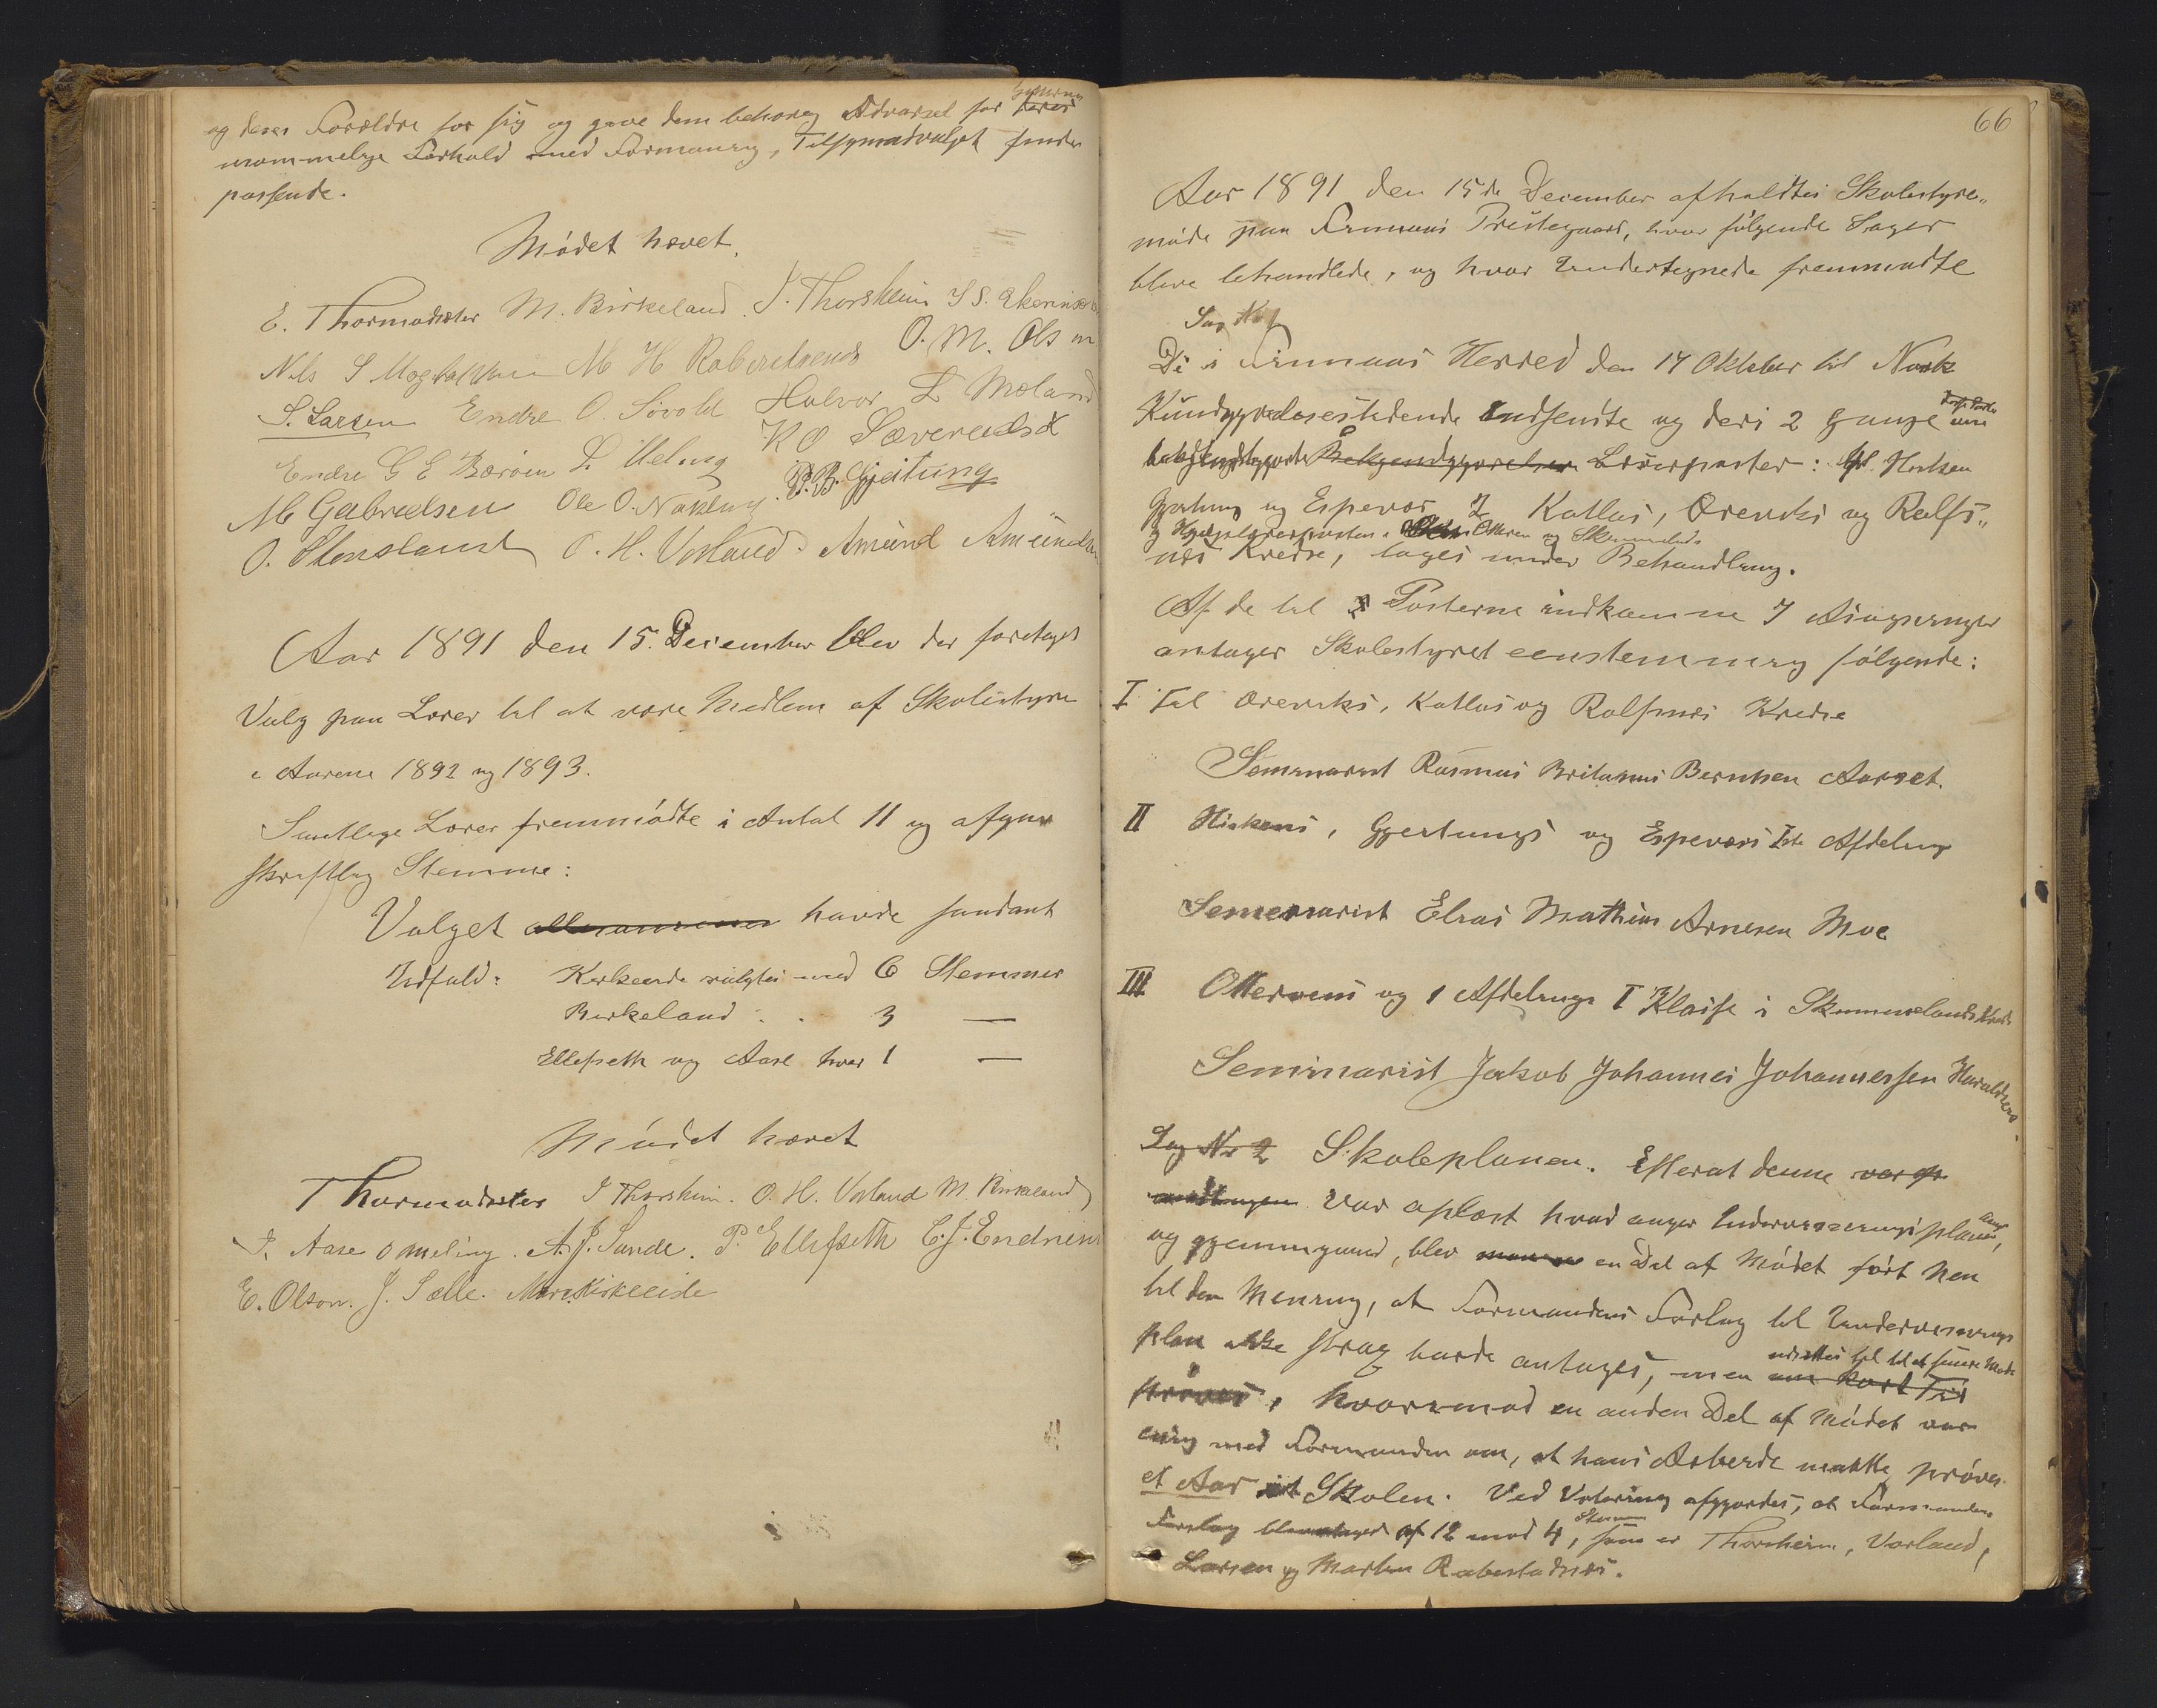 og deres Forældre for sig og gave dem behørig Advarsel for
usømmelige Forhold med Formaning, Tilsynsudvalget finder
passende.
Mødet hævet.
E. Thormodsæter M. Birkeland. J. Thorsheim
O. M. Olsen
Nils S M H Rabbestadnæs
S. Larsen Endre O. Søvold Halvor L Moland
K O
Endre G E Børøen D. Meling
P. B. Gjeitung
M Gabrielsen Ole O.
O. Stensland O. H. Vorland. Amund Amundsen
Aar 1891 den 15. December blev der foretaget
Valg paa Lærer til at være Medlem af Skolestyre
i Aarene 1892 og 1893.
Samtlige Lærer fremmødte i Antal 11 og afgav
skriftlig Stemme:
Valget havde saadant
Udfald: Kirkeeide valgtes med 6 Stemmer
Birkeland . . 3 —
Ellefsæth og Aase hver 1 —
Mødet hævet
Thormodsæter J Thorsheim. O. H. Vorland M. Birkeland
Aase O Meling. A. J. Sande. P. Ellefsæth C. J. Endresen
E. Olson. J. Sælle. Kirkeeide
66
Aar 1891 den 15de December afholdtes Skolestyre„
møde paa Finnaas Prestegaard, hvor følgende Sager
bleve behandlede, og hvor Undertegnede fremmødte
Sag No 1
De i Finnaas Herred den 17 Oktober til Norsk
Kundgjørelsestidende indsendte og deri 2 Gange
Lærerposter: Hiskens
Gjeitung og Espevær, Katlas, Ørevik og Rolfs„
og Hjelpelærerposten i Otteren og Skimmelands
næs Kredse, tages under Behandling.
Af de til Posterne indkomne 7 Ansøgninger
antages Skolestyret eenstemmig følgende:
I Til Øreviks, Katlas og Rolfsnæs Kredse
Seminarist Rasmus Berntsen Aarset.
II Hiskens, Gjeitungs og Espeværs 1ste Afdeling
Seminarist Elias Mathias Arnesen Moe
III Ottervens og 1 Afdelings I Klasse i Skimmelands Kreds
Seminarist Jakob Johannes Johannessen Haraldsen.
Sag No 2 Skoleplanen. Efterat denne
var oplæst hvad anger Undervisningsplanen,
og gjennemgaaed, blev en Del af Mødet ført hen
til den Mening, at Formandens Forslag til Undervisnings
plan ikke strax burde antages, men
udsættes til et senere Møde
prøves, hvorimod en anden Del af Mødet var
enig med Formanden om, at hans Arbeide maatte prøves
et Aar i Skolen. Ved Votering afgjordes, at Formandens
Forslag af 12 mod 4, som er Thorsheim, Vorland,
Larsen og Marten Rabestadnæs.